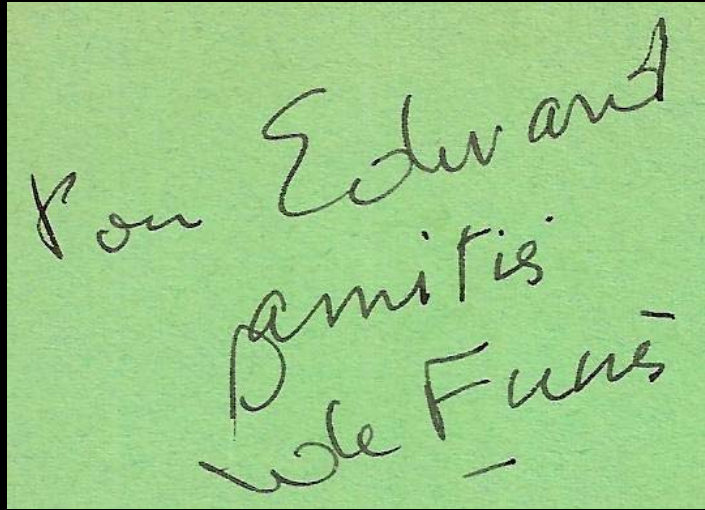 Pour Edward
amitiés
L de Funès